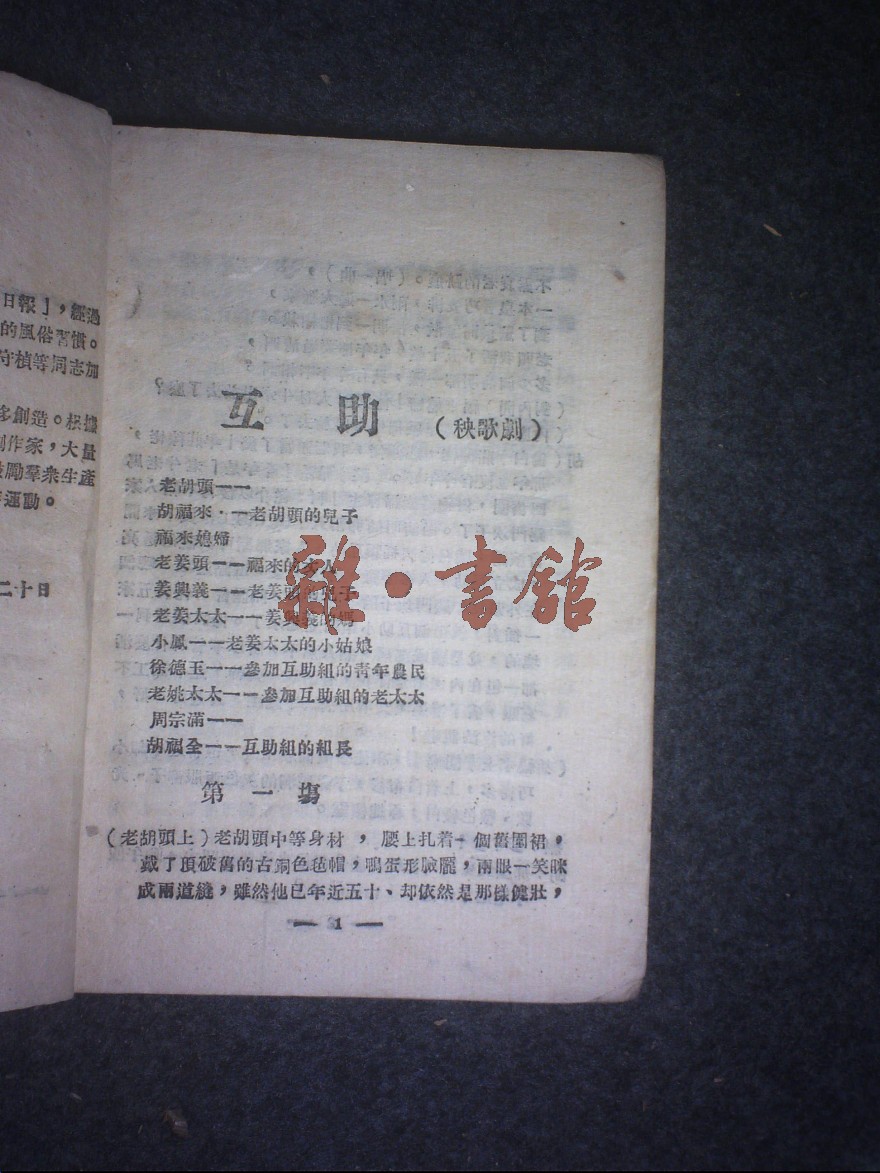 日報」，經過
的風俗習慣。
守楨等同志加
多創造。根據
創作家，大量
鼓勵羣衆生產
運動。
二十日
互助 （秧歌劇）
老胡頭一一
胡福來·一老胡頭的兒子
福來媳婦
老姜頭一一福來的丈人
姜興義一一老姜頭的兒子
老姜太太一一姜興義的媽
小鳳一一老姜太太的小姑娘
徐德玉一一參加互助組的靑年農民
老姚太太一一參加互助組的老太太
周宗滿一一
胡福全一一互助組的組長
第一塲
（老胡頭上）老胡頭中等身材，腰上扎着一個舊圍裙，
戴了頂破舊的古銅色毡帽，鴨蛋形臉龐，兩眼一笑眯
成兩道縫，雖然他已年近五十、却依然是那樣健壯，
— 1 —
雜·書館